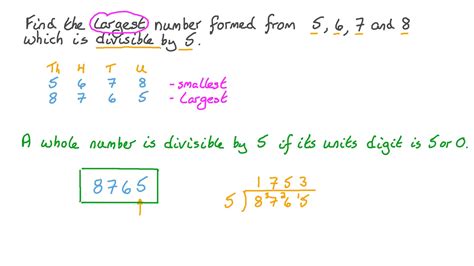 Find the largest number formed from 5, 6, 7 and 8
which is divisible by 5.
Th H T U
5 6 7 8 - smallest
8 7 6 5 - Largest
A whole number is divisible by 5 if its units digit is 5 or 0.
8765
1 7 5 3
5 8 ³7 ²6 ¹5